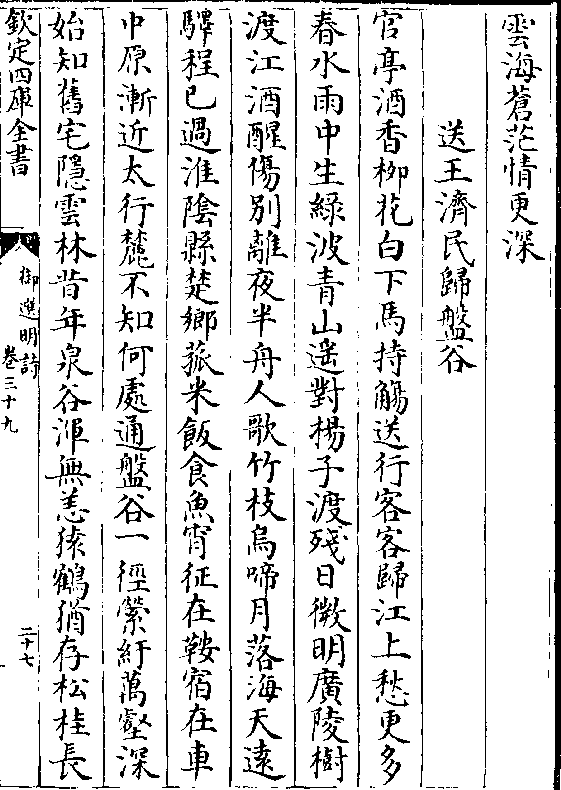 雲海蒼茫情更深
送王濟民歸盤谷
官亭酒香柳花白下馬持觴送行客客歸江上愁更多
春水雨中生綠波青山遥對楊子渡殘日微明廣陵樹
渡江酒醒傷別離夜半舟人歌竹枝烏啼月落海天遠
驛程已過淮陰縣楚鄉菰米飯食魚宵征在鞍宿在車
中原漸近太行麓不知何處通盤谷一徑縈紆萬壑深
始知舊宅隱雲林昔年泉谷渾無恙猿鶴猶存松桂長
欽定四庫全書
御選明詩
卷三十九
二十七